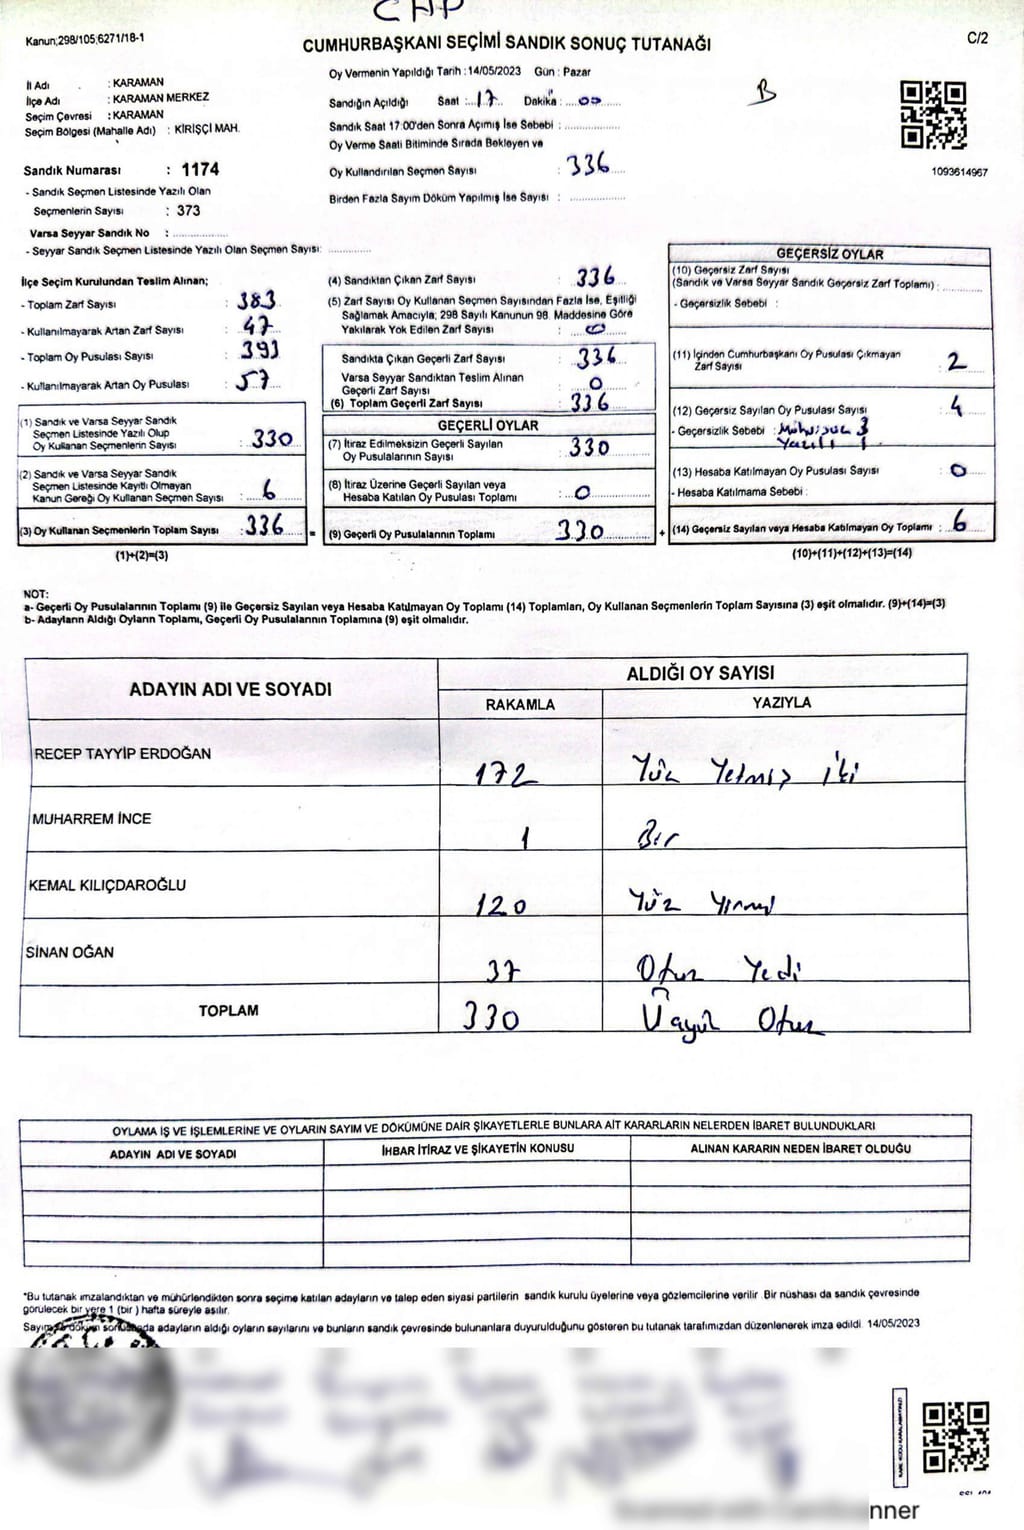 CHP
Kanun;298/105;6271/18-1
C/2
CUMHURBAŞKANI SEÇİMİ SANDIK SONUÇ TUTANAĞI
İl Adı : KARAMAN
İlçe Adı : KARAMAN MERKEZ
Seçim Çevresi : KARAMAN
Seçim Bölgesi (Mahalle Adı) : KİRİŞÇİ MAH.
Sandık Numarası : 1174
- Sandık Seçmen Listesinde Yazılı Olan
Seçmenlerin Sayısı : 373
Varsa Seyyar Sandık No : ..................
- Seyyar Sandık Seçmen Listesinde Yazılı Olan Seçmen Sayısı: ..............
Oy Vermenin Yapıldığı Tarih : 14/05/2023 Gün : Pazar
Sandığın Açıldığı Saat : 17 Dakika : 00
Sandık Saat 17:00'den Sonra Açımış İse Sebebi : ..................
Oy Verme Saati Bitiminde Sırada Bekleyen ve
Oy Kullandırılan Seçmen Sayısı : 336
Birden Fazla Sayım Döküm Yapılmış İse Sayısı : ..................
B
1093614967
İlçe Seçim Kurulundan Teslim Alınan;
- Toplam Zarf Sayısı : 383
- Kullanılmayarak Artan Zarf Sayısı : 47
- Toplam Oy Pusulası Sayısı : 393
- Kullanılmayarak Artan Oy Pusulası : 57
(1) Sandık ve Varsa Seyyar Sandık
Seçmen Listesinde Yazılı Olup
Oy Kullanan Seçmenlerin Sayısı : 330
(2) Sandık ve Varsa Seyyar Sandık
Seçmen Listesinde Kayıtlı Olmayan
Kanun Gereği Oy Kullanan Seçmen Sayısı : 6
(3) Oy Kullanan Seçmenlerin Toplam Sayısı : 336 =
(1)+(2)=(3)
(4) Sandıktan Çıkan Zarf Sayısı : 336
(5) Zarf Sayısı Oy Kullanan Seçmen Sayısından Fazla İse, Eşitliği
Sağlamak Amacıyla; 298 Sayılı Kanunun 98. Maddesine Göre
Yakılarak Yok Edilen Zarf Sayısı : 0
Sandıkta Çıkan Geçerli Zarf Sayısı : 336
Varsa Seyyar Sandıktan Teslim Alınan
Geçerli Zarf Sayısı : 0
(6) Toplam Geçerli Zarf Sayısı : 336
GEÇERLİ OYLAR
(7) İtiraz Edilmeksizin Geçerli Sayılan
Oy Pusulalarının Sayısı : 330
(8) İtiraz Üzerine Geçerli Sayılan veya
Hesaba Katılan Oy Pusulası Toplamı : 0
(9) Geçerli Oy Pusulalarının Toplamı : 330 +
GEÇERSİZ OYLAR
(10) Geçersiz Zarf Sayısı
(Sandık ve Varsa Seyyar Sandık Geçersiz Zarf Toplamı) : ............
- Geçersizlik Sebebi :
(11) İçinden Cumhurbaşkanı Oy Pusulası Çıkmayan
Zarf Sayısı : 2
(12) Geçersiz Sayılan Oy Pusulası Sayısı : 4
- Geçersizlik Sebebi : Mühürsüz 3
Yazılı 1
(13) Hesaba Katılmayan Oy Pusulası Sayısı : 0
- Hesaba Katılmama Sebebi :
(14) Geçersiz Sayılan veya Hesaba Katılmayan Oy Toplamı : 6
(10)+(11)+(12)+(13)=(14)
NOT:
a- Geçerli Oy Pusulalarının Toplamı (9) ile Geçersiz Sayılan veya Hesaba Katılmayan Oy Toplamı (14) Toplamları, Oy Kullanan Seçmenlerin Toplam Sayısına (3) eşit olmalıdır. (9)+(14)=(3)
b- Adayların Aldığı Oyların Toplamı, Geçerli Oy Pusulalarının Toplamına (9) eşit olmalıdır.
ADAYIN ADI VE SOYADI
ALDIĞI OY SAYISI
RAKAMLA YAZIYLA
RECEP TAYYİP ERDOĞAN 172 Yüz Yetmiş iki
MUHARREM İNCE 1 Bir
KEMAL KILIÇDAROĞLU 120 Yüz Yirmi
SİNAN OĞAN 37 Otuz Yedi
TOPLAM 330 Üçyüz Otuz
OYLAMA İŞ VE İŞLEMLERİNE VE OYLARIN SAYIM VE DÖKÜMÜNE DAİR ŞİKAYETLERLE BUNLARA AİT KARARLARIN NELERDEN İBARET BULUNDUKLARI
ADAYIN ADI VE SOYADI İHBAR İTİRAZ VE ŞİKAYETİN KONUSU ALINAN KARARIN NEDEN İBARET OLDUĞU
*Bu tutanak imzalandıktan ve mühürlendikten sonra seçime katılan adayların ve talep eden siyasi partilerin sandık kurulu üyelerine veya gözlemcilerine verilir. Bir nüshası da sandık çevresinde
görülecek bir yere 1 (bir ) hafta süreyle asılır.
Sayım döküm sonucunda adayların aldığı oyların sayılarını ve bunların sandık çevresinde bulunanlara duyurulduğunu gösteren bu tutanak tarafımızdan düzenlenerek imza edildi. 14/05/2023
Scanned with CamScanner